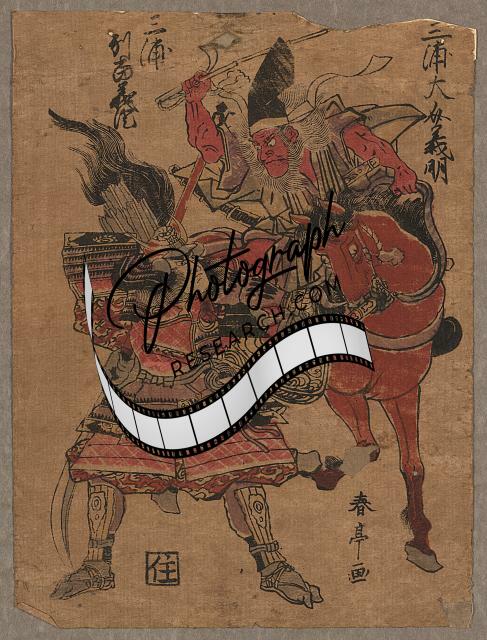 三浦大介義明
三浦
別當義澄
春亭画
住
Photograph
RESEARCH.COM